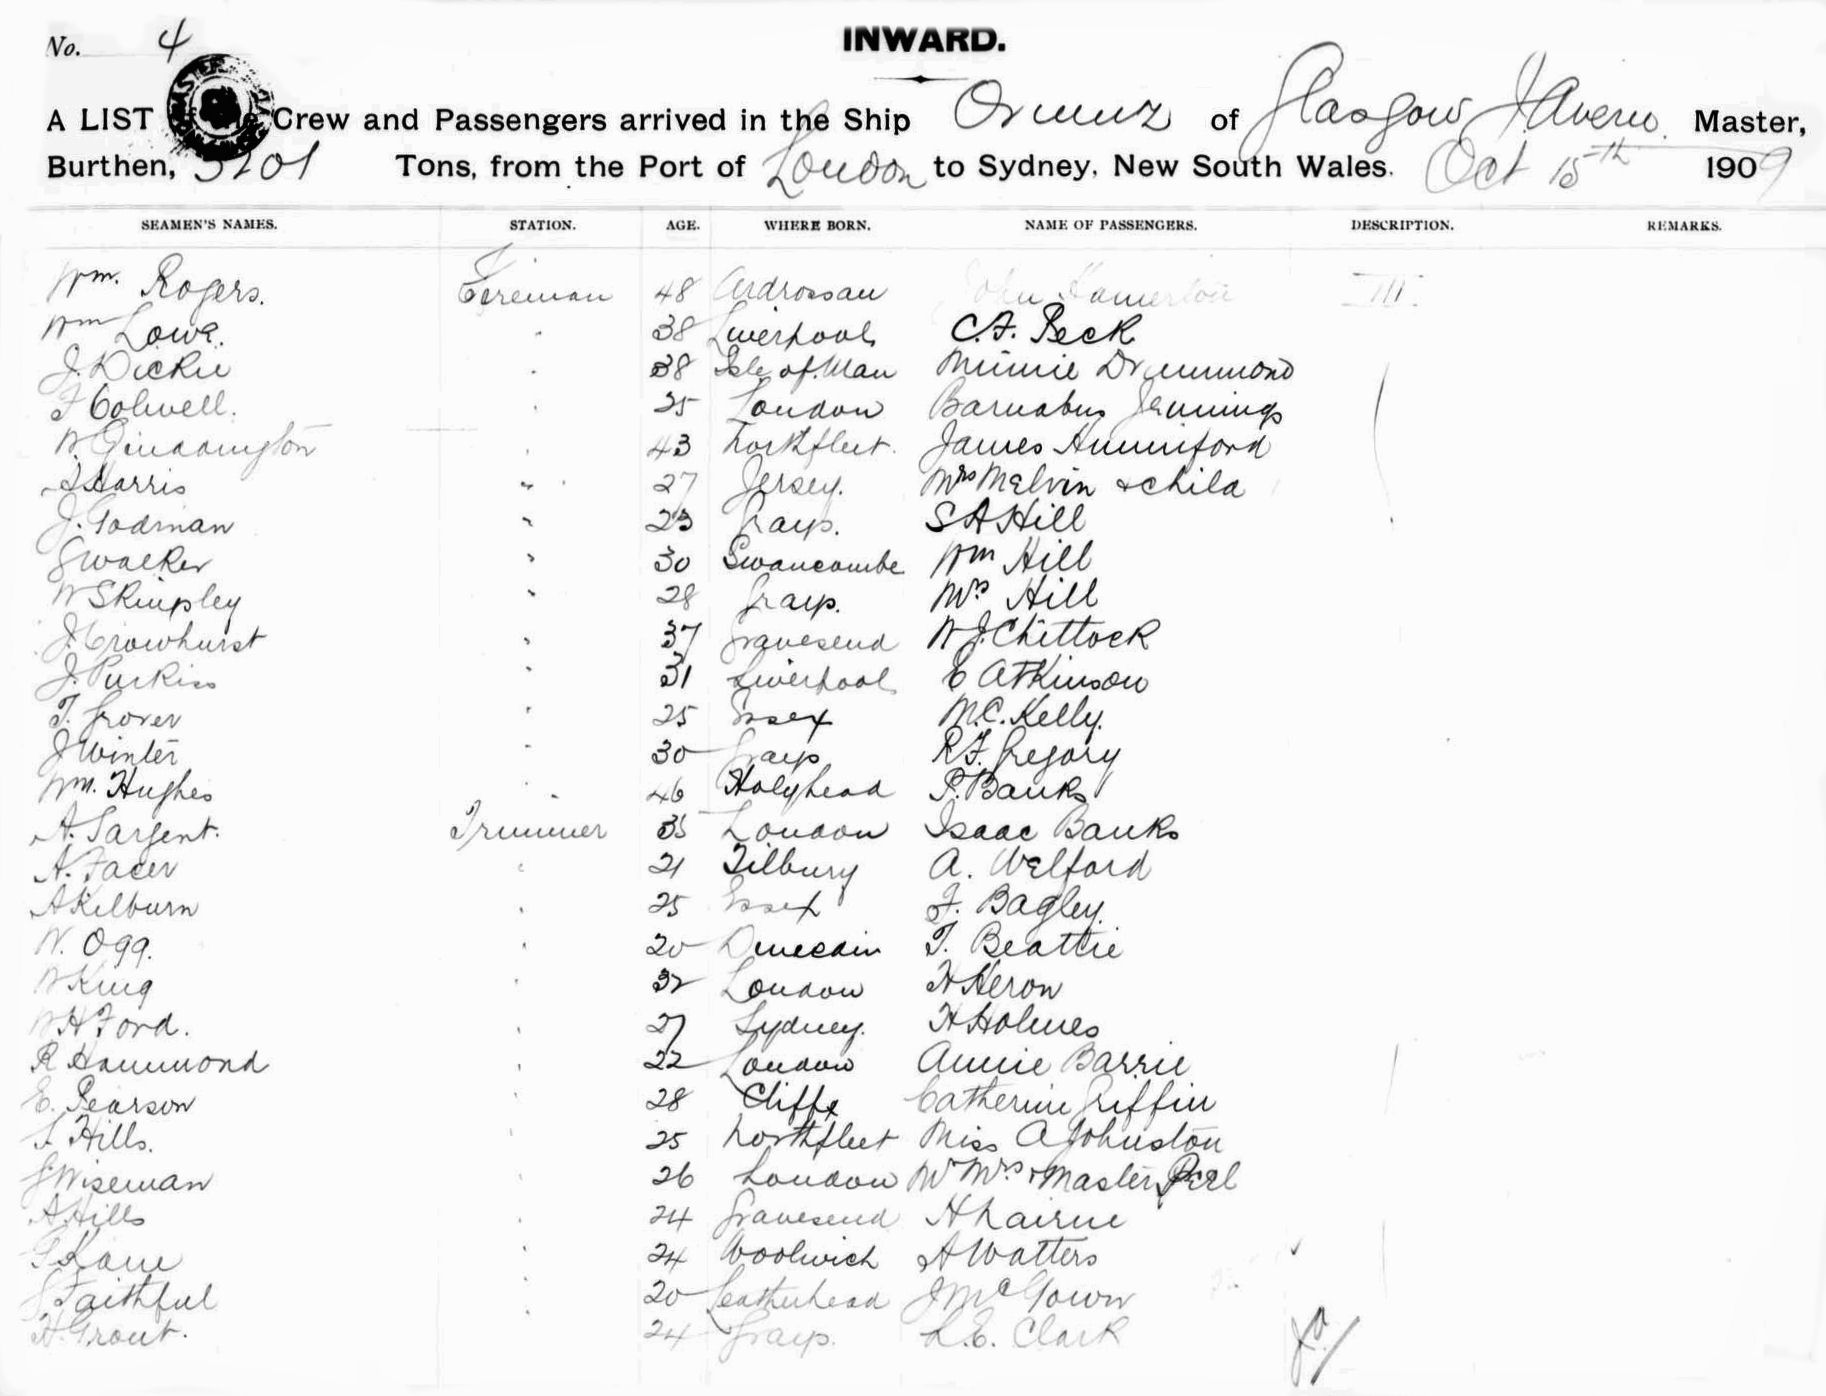 No. 4
INWARD.
A LIST Crew and Passengers arrived in the Ship Ormuz of Glasgow, J. Avern Master,
Burthen, 3201 Tons, from the Port of London to Sydney, New South Wales. Oct 15th 1909
SEAMEN'S NAMES. STATION. AGE. WHERE BORN. NAME OF PASSENGERS. DESCRIPTION. REMARKS.
Wm. Rogers. Fireman 48 Ardrossan John Hamerton III
Wm Lowe. " 38 Liverpool C.F. Peck
J. Dickie " 38 Isle of Man Minnie Drummond
F Colwell. " 25 London Barnabus Jennings
W. " 43 Northfleet. James Hunniford
Harris " 27 Jersey. Mrs Melvin & child
J. Godman " 23 Grays. S A Hill
G Walker " 30 Swanscombe Wm Hill
W Skingley " 28 Grays. Mrs Hill
J. Crowhurst " 37 Gravesend W J. Chittock
J. Purkiss " 31 Liverpool E Atkinson
T. Grover " 25 Essex M.C. Kelly.
J Winter " 30 Grays R F. Gregory
Wm. Hughes " 46 Holyhead P. Banks
A. Sargent. Trimmer 35 London Isaac Banks
A. Facer " 21 Tilbury A. Welford
A Kilburn " 25 Essex F. Bagley.
W. Ogg. " 20 Dunedin T. Beattie
W King " 32 London H Heron
W H Ford. " 27 Sydney. H Holmes
R Hammond " 22 London Annie Barrie
E. Pearson " 28 Cliffe Catherine Griffin
Hills. " 25 Northfleet Miss A Johnston
G Wiseman " 26 London Mr Mrs & Master Peel
A Hills " 24 Gravesend H Nairne
Kane " 24 Woolwich A Watters
Faithful " 20 Leatherhead J McGown
H. Grout. " 24 Grays. L.E. Clark